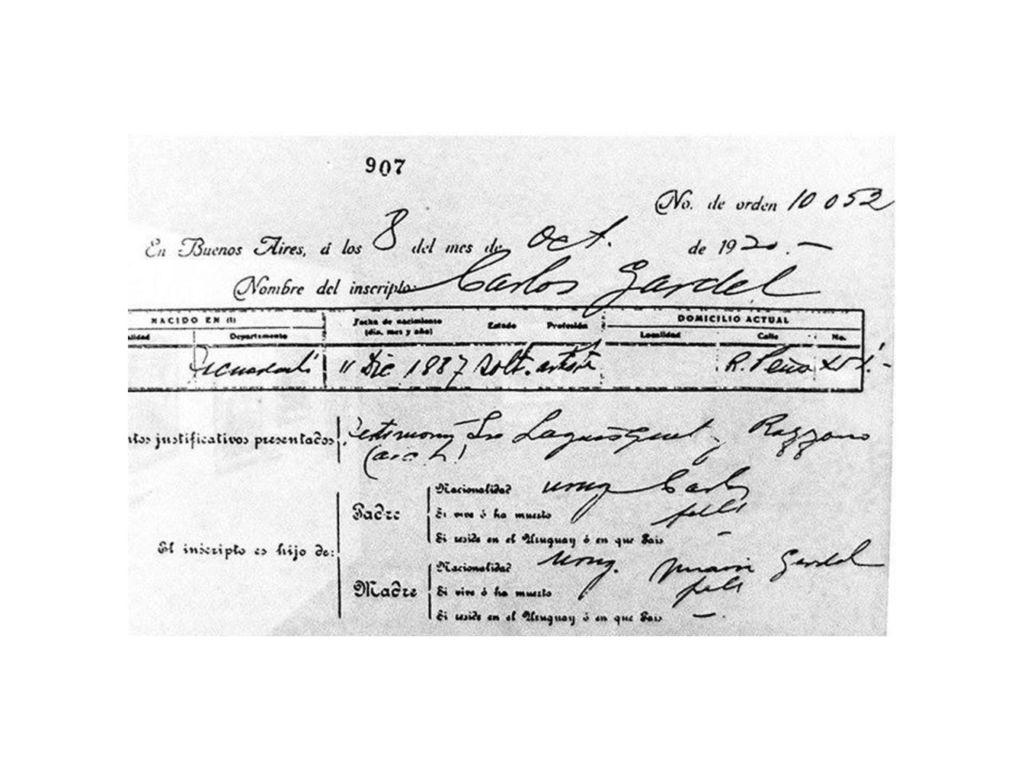 907
No. de orden 10 052
En Buenos Aires, á los 8 del mes de Oct. de 1920.-
Nombre del inscripto: Carlos Gardel
NACIDO EN (1) Fecha de nacimiento Estado Profesión DOMICILIO ACTUAL
lidad Departamento (día, mes y año) Localidad Calle No.
11 Dic 1887 Solt. artista R. Peña 451.-
ntos justificativos presentados: Razzano
Nacionalidad urug Carlos
Padre Si vive ó ha muerto
Si reside en el Uruguay ó en que País -
El inscripto es hijo de:
Nacionalidad urug. María Gardel
Madre Si vive ó ha muerto
Si reside en el Uruguay ó en que País -